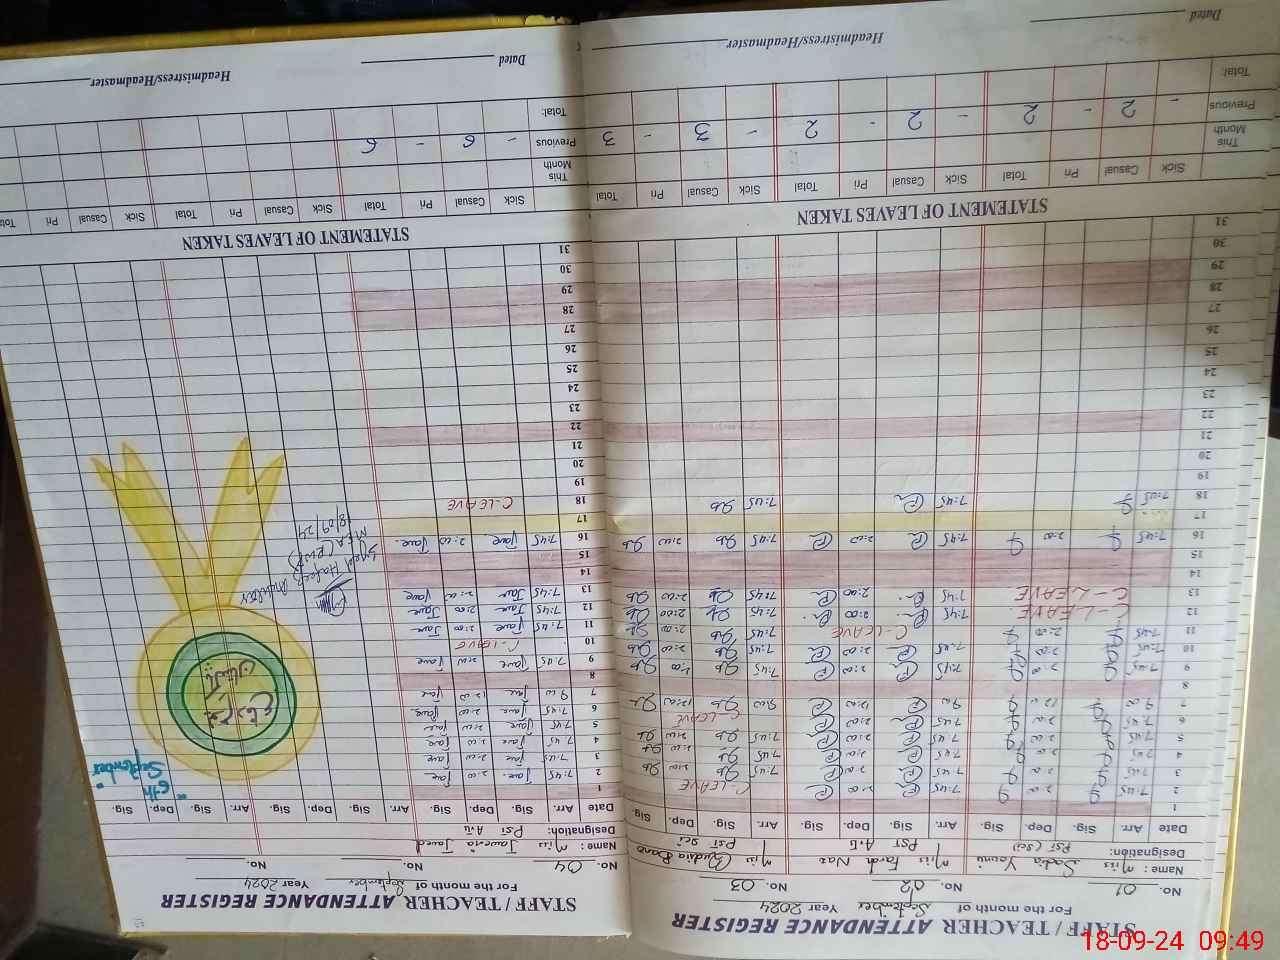 STAFF / TEACHER ATTENDANCE REGISTER
For the month of September Year 2024
No. 01 No. 02 No. 03
Name : Miss Sadia Miss Farah Naz Miss Bano
Designation: PST (Sci) PST A.G PST Sci
Date Arr. Sig. Dep. Sig. Arr. Sig. Dep. Sig. Arr. Sig. Dep. Sig.
1
2 7:45 2:00 7:45 2:00 C-LEAVE
3 7:45 2:00 7:45 2:00 7:45 2:00
4 7:45 2:00 7:45 2:00 7:45 2:00
5 7:45 2:00 7:45 2:00 7:45 2:00
6 7:45 2:00 7:45 2:00 C-LEAVE
7 9:00 12:00 9:00 12:00 9:00 12:00
8
9 7:45 2:00 7:45 2:00 7:45 2:00
10 7:45 2:00 7:45 2:00 7:45 2:00
11 7:45 2:00 C-LEAVE 7:45 2:00
12 C-LEAVE 7:45 2:00 7:45 2:00
13 C-LEAVE 7:45 2:00 7:45 2:00
14
15
16 7:45 2:00 7:45 2:00 7:45 2:00
17
18 7:45 7:45 7:45
19
20
21
22
23
24
25
26
27
28
29
30
31
STATEMENT OF LEAVES TAKEN
Sick Casual Pri Total Sick Casual Pri Total Sick Casual Pri Total
This Month
Previous - 2 - 2 - 2 - 2 - 3 - 3
Total:
Dated Headmistress/Headmaster
STAFF / TEACHER ATTENDANCE REGISTER
For the month of September Year 2024
No. 04 No. No.
Name : Miss Javeria Javed
Designation: PST A.G
Date Arr. Sig. Dep. Sig. Arr. Sig. Dep. Sig. Arr. Sig. Dep. Sig.
1
2 7:45 Jave 2:00 Jave
3 7:45 Jave 2:00 Jave
4 7:45 Jave 2:00 Jave
5 7:45 Jave 2:00 Jave
6 7:45 Jave 2:00 Jave
7 9:00 Jave 12:00 Jave
8
9 7:45 Jave 2:00 Jave
10 C-LEAVE
11 7:45 Jave 2:00 Jave
12 7:45 Jave 2:00 Jave
13 7:45 Jave 2:00 Jave
14
15
16 7:45 Jave 2:00 Jave
17
18 C-LEAVE
19
20
21
22
23
24
25
26
27
28
29
30
31
6th September
یوم دفاع
پاکستان
MEA (RWP)
18/09/24
STATEMENT OF LEAVES TAKEN
Sick Casual Pri Total Sick Casual Pri Total Sick Casual Pri Total
This Month
Previous - 6 - 6
Total:
Dated Headmistress/Headmaster
18-09-24 09:49